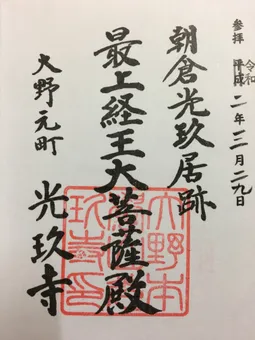 参拝 平成 令和 二年三月二九日
朝倉光玖居跡
最上経王大菩薩殿
大野元町 光玖寺